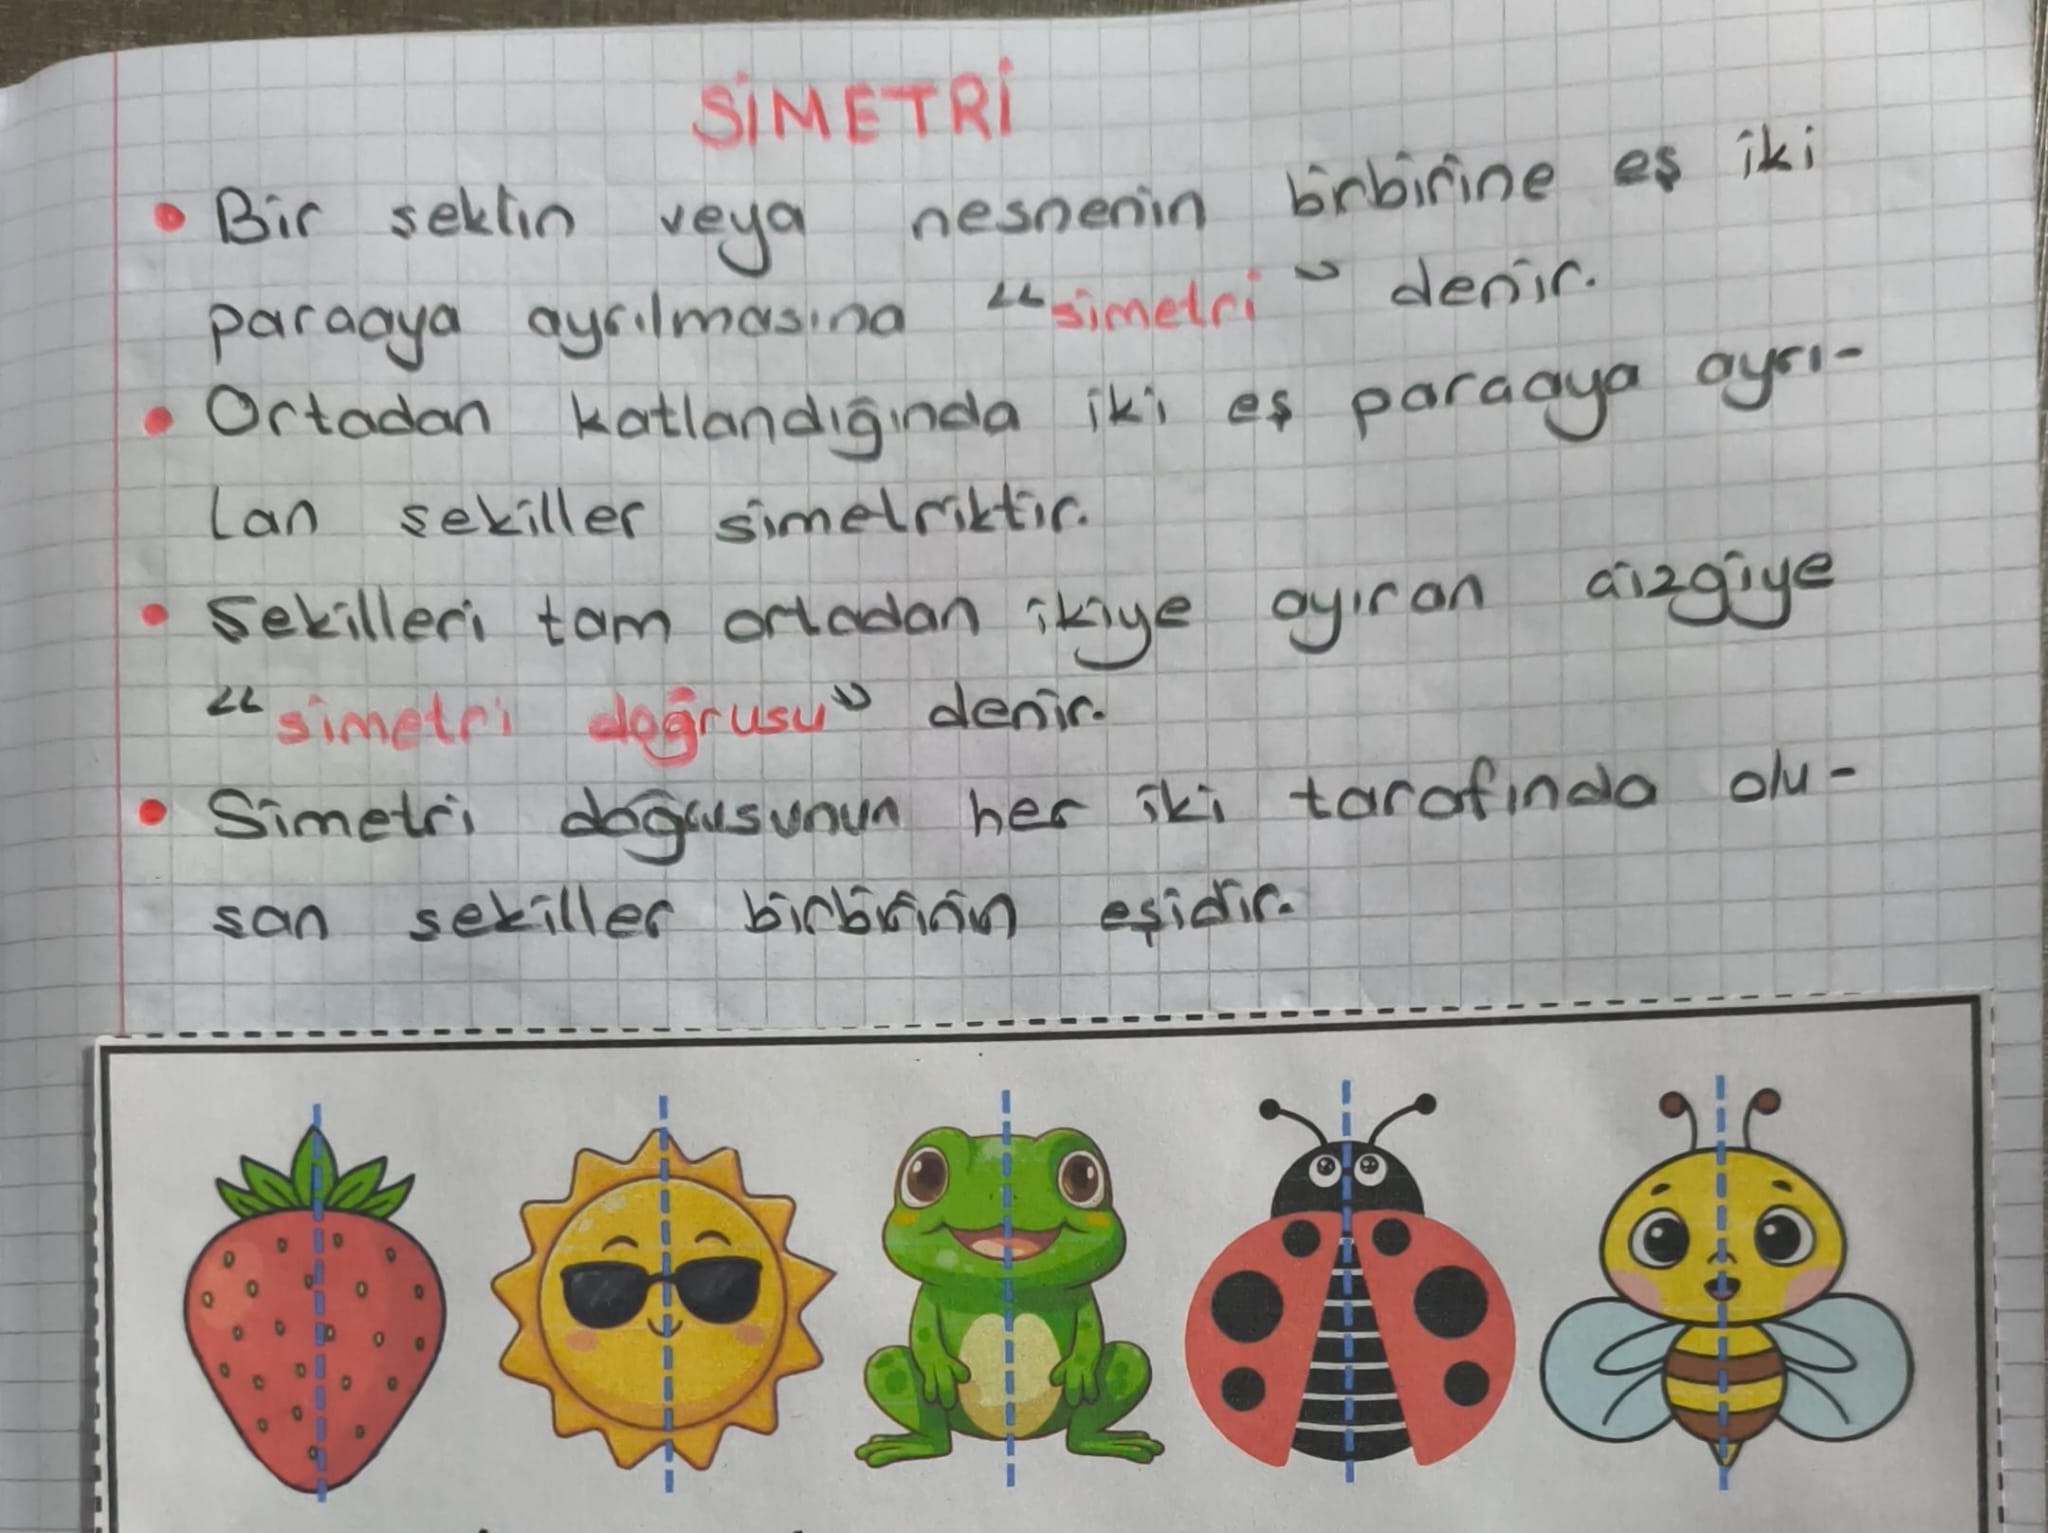 SİMETRİ
• Bir şeklin veya nesnenin birbirine eş iki
parçaya ayrılmasına "simetri" denir.
• Ortadan katlandığında iki eş parçaya ayrı-
lan şekiller simetriktir.
• Şekilleri tam ortadan ikiye ayıran çizgiye
"simetri doğrusu" denir.
• Simetri doğrusunun her iki tarafında olu-
şan şekiller birbirinin eşidir.